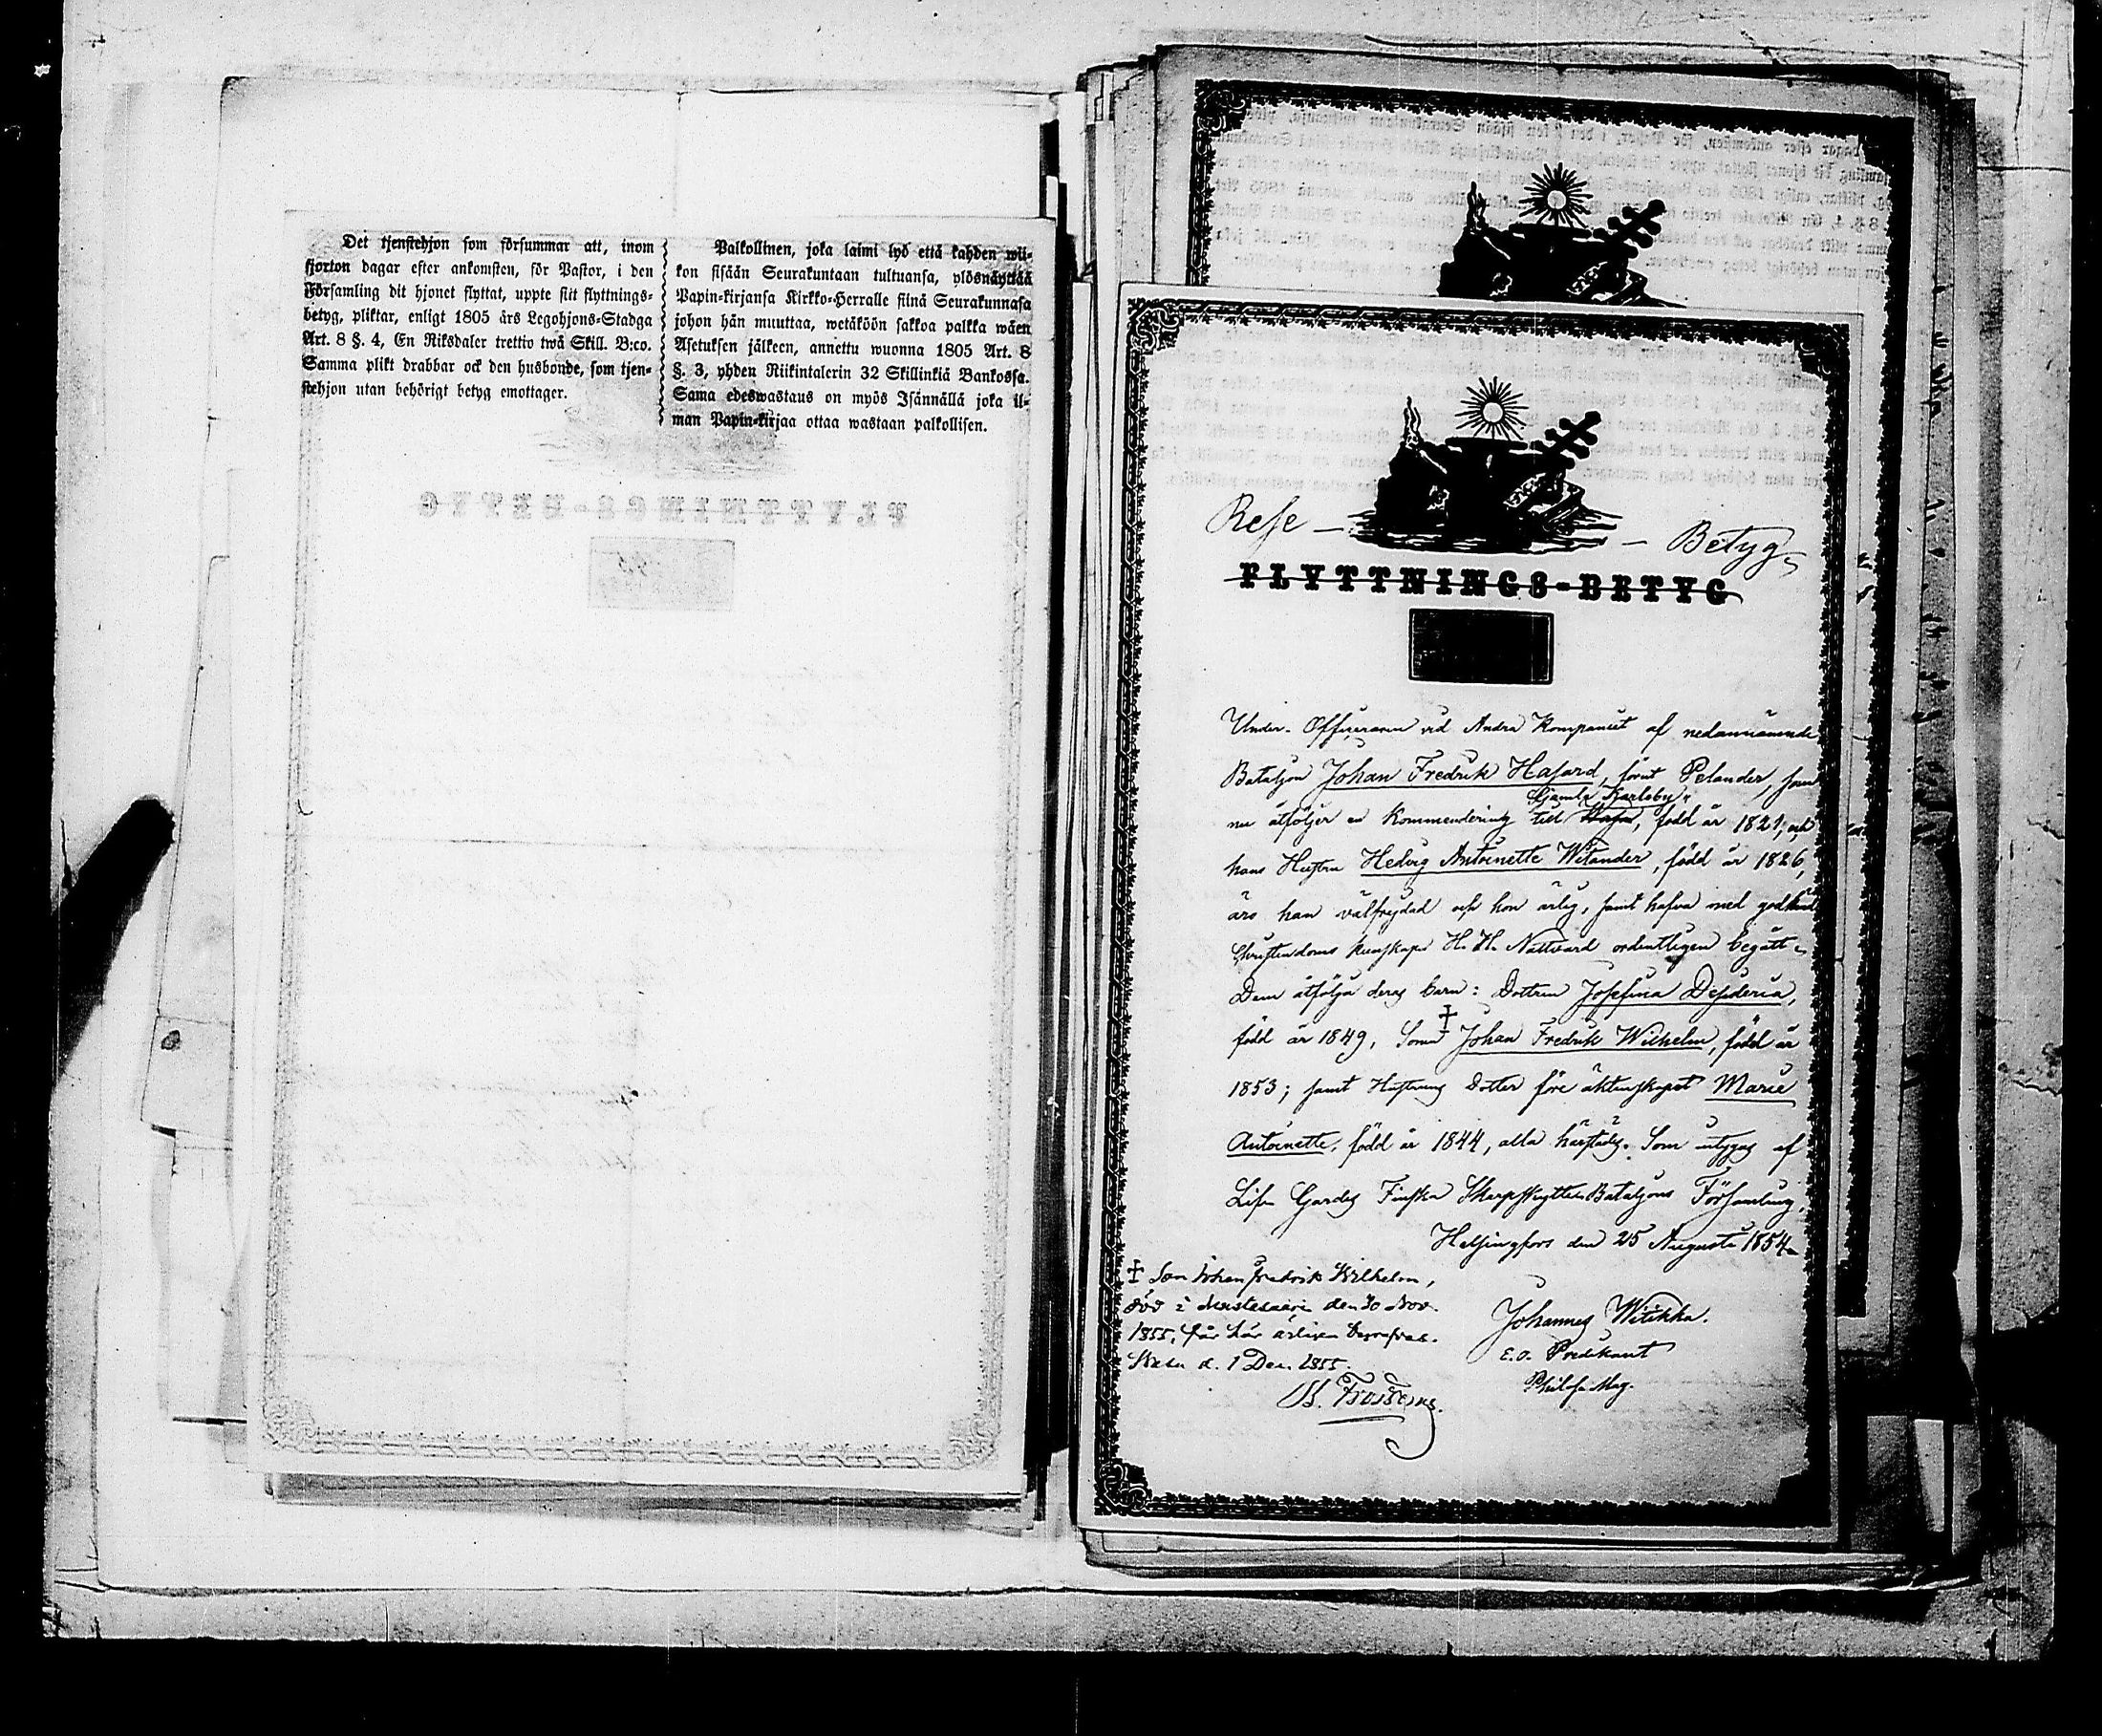 Det tjenstehjon som försummar att, inom
fjorton dagar efter ankomsten, för Pastor, i den
Församling dit hjonet flyttat, uppte sitt flyttnings-
betyg, pliktar, enligt 1805 års Legohjons-Stadga
Art. 8 §. 4, En Riksdaler trettio twå Skill. B:co.
Samma plikt drabbar ock den husbonde, som tjen-
stehjon utan behörigt betyg emottager.
Palkollinen, joka laimi lyö että kahden wii-
kon sisään Seurakuntaan tultuansa, ylösnäyttää
Papin-kirjansa Kirkko-Herralle siinä Seurakunnasa
johon hän muuttaa, wetäköön sakkoa palkka wäen
Asetuksen jälkeen, annettu wuonna 1805 Art. 8
§. 3, yhden Riikintalerin 32 Skillinkiä Bankossa.
Sama edeswastaus on myös Isännällä joka il-
man Papin-kirjaa ottaa wastaan palkollisen.
Rese - - Betyg
FLYTTNINGS-BETYG
Under-Officeraren vid Andra Kompaniet af nedannämnde
Bataljon Johan Fredrik Hasard, förut Pelander, som
Gamla Karleby
nu åtföljer en Kommendering till Wasa, född år 1821, och
hans Hustru Hedvig Antoinette Witander, född år 1826,
äro han välfrejdad och hon ärlig, samt hafva med godkänd
Christendoms kunskaper H. H. Nattvard ordentligen begått.
Dem åtfölja deras barn: Dottren Josefina Desideria,
född år 1849, Sonen Johan Fredrik Wilhelm, född år
1853; samt Hustruns Dotter före äktenskapet Marie
Antoinette, född år 1844, alla härstädes. Som intygas af
Lif Gardes Finska Skarpskytte Bataljons Församling,
Helsingfors den 25 Augusti 1854
‡ Son Johan Fredrik Wilhelm,
död i Mustasaari den 30 Nov.
1855, får här ärligen begrafvas.
Wasa d. 1 Dec. 1855.
Johannes Witikka.
E.O. Predikant
Philos. Mag.